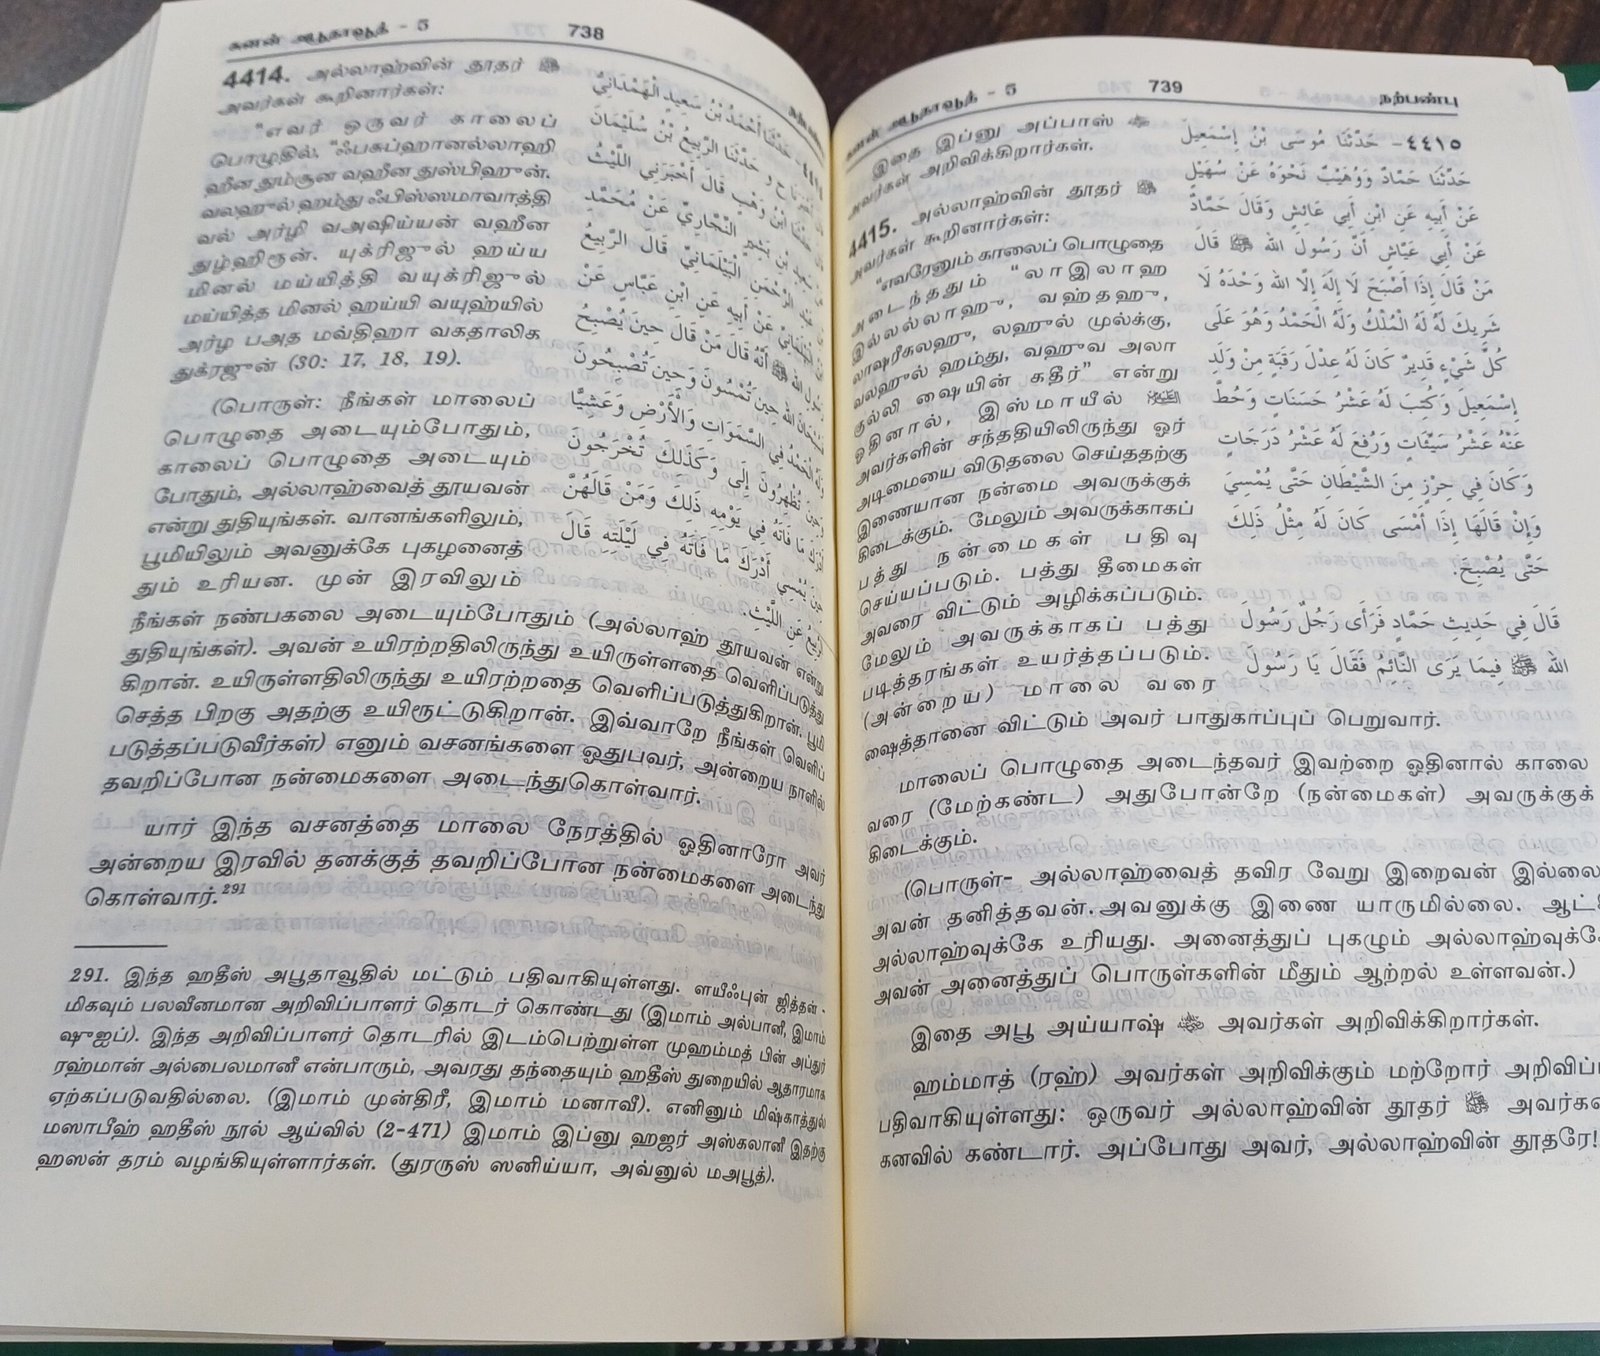 சுனன் அபூதாவூத் - 5 738
4414. அல்லாஹ்வின் தூதர் ﷺ
அவர்கள் கூறினார்கள்:
"எவர் ஒருவர் காலைப்
பொழுதில், "ஃபசுப்ஹானல்லாஹி
ஹீன தும்சூன வஹீன துஸ்பிஹுன்.
வலஹுல் ஹம்து ஃபிஸ்ஸமாவாத்தி
வல் அர்ழி வஅஷிய்யன் வஹீன
துழ்ஹிரூன். யுக்ரிஜுல் ஹய்ய
மினல் மய்யித்தி வயுக்ரிஜுல்
மய்யித்த மினல் ஹய்யி வயுஹ்யில்
அர்ழ பஅத மவ்திஹா வகதாலிக
துக்ரஜுன் (30: 17, 18, 19).
(பொருள்: நீங்கள் மாலைப்
பொழுதை அடையும்போதும்,
காலைப் பொழுதை அடையும்
போதும், அல்லாஹ்வைத் தூயவன்
என்று துதியுங்கள். வானங்களிலும்,
பூமியிலும் அவனுக்கே புகழனைத்
தும் உரியன. முன் இரவிலும்
நீங்கள் நண்பகலை அடையும்போதும் (அல்லாஹ் தூயவன் என்று
துதியுங்கள்). அவன் உயிரற்றதிலிருந்து உயிருள்ளதை வெளிப்படுத்து
கிறான். உயிருள்ளதிலிருந்து உயிரற்றதை வெளிப்படுத்துகிறான். பூமி
செத்த பிறகு அதற்கு உயிரூட்டுகிறான். இவ்வாறே நீங்கள் வெளிப்
படுத்தப்படுவீர்கள்) எனும் வசனங்களை ஓதுபவர், அன்றைய நாளில்
தவறிப்போன நன்மைகளை அடைந்துகொள்வார்.
யார் இந்த வசனத்தை மாலை நேரத்தில் ஓதினாரோ அவர்
அன்றைய இரவில் தனக்குத் தவறிப்போன நன்மைகளை அடைந்து
கொள்வார்.291
حَدَّثَنَا أَحْمَدُ بْنُ سَعِيدٍ الْهَمْدَانِيُّ
حَدَّثَنَا الرَّبِيعُ بْنُ سُلَيْمَانَ
ابْنُ وَهْبٍ قَالَ أَخْبَرَنِي اللَّيْثُ
بْنِ بَشِيرٍ النَّجَّارِيِّ عَنْ مُحَمَّدِ
الْبَيْلَمَانِيِّ قَالَ الرَّبِيعُ
عَنْ أَبِيهِ عَنِ ابْنِ عَبَّاسٍ عَنْ
ﷺ أَنَّهُ قَالَ مَنْ قَالَ حِينَ يُصْبِحُ
اللهِ حِينَ تُمْسُونَ وَحِينَ تُصْبِحُونَ
الْحَمْدُ فِي السَّمَوَاتِ وَالْأَرْضِ وَعَشِيًّا
تُظْهِرُونَ إِلَى وَكَذَلِكَ تُخْرَجُونَ
مَا فَاتَهُ فِي يَوْمِهِ ذَلِكَ وَمَنْ قَالَهُنَّ
يُمْسِي أَدْرَكَ مَا فَاتَهُ فِي لَيْلَتِهِ قَالَ
عَنِ اللَّيْثِ.
291. இந்த ஹதீஸ் அபூதாவூதில் மட்டும் பதிவாகியுள்ளது. ளயீஃபுன் ஜித்தன் -
மிகவும் பலவீனமான அறிவிப்பாளர் தொடர் கொண்டது (இமாம் அல்பானி, இமாம்
ஷுஐப்). இந்த அறிவிப்பாளர் தொடரில் இடம்பெற்றுள்ள முஹம்மத் பின் அப்துர்
ரஹ்மான் அல்பைலமானீ என்பாரும், அவரது தந்தையும் ஹதீஸ் துறையில் ஆதாரமாக
ஏற்கப்படுவதில்லை. (இமாம் முன்திரீ, இமாம் மனாவீ). எனினும் மிஷ்காத்துல்
மஸாபீஹ் ஹதீஸ் நூல் ஆய்வில் (2-471) இமாம் இப்னு ஹஜர் அஸ்கலானீ இதற்கு
ஹஸன் தரம் வழங்கியுள்ளார்கள். (துரருஸ் ஸனிய்யா, அவ்னுல் மஅபூத்).
சுனன் அபூதாவூத் - 5 739 நற்பண்பு
இதை இப்னு அப்பாஸ்
அவர்கள் அறிவிக்கிறார்கள்.
4415. அல்லாஹ்வின் தூதர் ﷺ
அவர்கள் கூறினார்கள்:
"எவரேனும் காலைப் பொழுதை
அடைந்ததும் "லாஇலாஹ
இல்லல்லாஹு, வஹ்தஹு,
லாஷரீகலஹு, லஹுல் முல்க்கு,
வலஹுல் ஹம்து, வஹுவ அலா
குல்லி ஷையின் கதீர்" என்று
ஓதினால், இஸ்மாயீல்
அவர்களின் சந்ததியிலிருந்து ஓர்
அடிமையை விடுதலை செய்ததற்கு
இணையான நன்மை அவருக்குக்
கிடைக்கும். மேலும் அவருக்காகப்
பத்து நன்மைகள் பதிவு
செய்யப்படும். பத்து தீமைகள்
அவரை விட்டும் அழிக்கப்படும்.
மேலும் அவருக்காகப் பத்து
படித்தரங்கள் உயர்த்தப்படும்.
(அன்றைய) மாலை வரை
ஷைத்தானை விட்டும் அவர் பாதுகாப்புப் பெறுவார்.
٤٤١٥- حَدَّثَنَا مُوسَى بْنُ إِسْمَعِيلَ
حَدَّثَنَا حَمَّادٌ وَوُهَيْبٌ نَحْوَهُ عَنْ سُهَيْلٍ
عَنْ أَبِيهِ عَنِ ابْنِ أَبِي عَائِشٍ وَقَالَ حَمَّادٌ
عَنْ أَبِي عَيَّاشٍ أَنَّ رَسُولَ اللهِ ﷺ قَالَ
مَنْ قَالَ إِذَا أَصْبَحَ لَا إِلَهَ إِلَّا اللهُ وَحْدَهُ لَا
شَرِيكَ لَهُ لَهُ الْمُلْكُ وَلَهُ الْحَمْدُ وَهُوَ عَلَى
كُلِّ شَيْءٍ قَدِيرٌ كَانَ لَهُ عِدْلَ رَقَبَةٍ مِنْ وَلَدِ
إِسْمَعِيلَ وَكُتِبَ لَهُ عَشْرُ حَسَنَاتٍ وَحُطَّ
عَنْهُ عَشْرُ سَيِّئَاتٍ وَرُفِعَ لَهُ عَشْرُ دَرَجَاتٍ
وَكَانَ فِي حِرْزٍ مِنَ الشَّيْطَانِ حَتَّى يُمْسِيَ
وَإِنْ قَالَهَا إِذَا أَمْسَى كَانَ لَهُ مِثْلُ ذَلِكَ
حَتَّى يُصْبِحَ.
قَالَ فِي حَدِيثِ حَمَّادٍ فَرَأَى رَجُلٌ رَسُولَ
اللهِ ﷺ فِيمَا يَرَى النَّائِمُ فَقَالَ يَا رَسُولَ
மாலைப் பொழுதை அடைந்தவர் இவற்றை ஓதினால் காலை
வரை (மேற்கண்ட) அதுபோன்றே (நன்மைகள்) அவருக்குக்
கிடைக்கும்.
(பொருள்- அல்லாஹ்வைத் தவிர வேறு இறைவன் இல்லை
அவன் தனித்தவன். அவனுக்கு இணை யாருமில்லை.
அல்லாஹ்வுக்கே உரியது. அனைத்துப் புகழும் அல்லாஹ்வுக்கே
அவன் அனைத்துப் பொருள்களின் மீதும் ஆற்றல் உள்ளவன்.)
இதை அபூ அய்யாஷ் அவர்கள் அறிவிக்கிறார்கள்.
ஹம்மாத் (ரஹ்) அவர்கள் அறிவிக்கும் மற்றோர்
பதிவாகியுள்ளது: ஒருவர் அல்லாஹ்வின் தூதர் ﷺ
கனவில் கண்டார். அப்போது அவர், அல்லாஹ்வின் தூதரே!